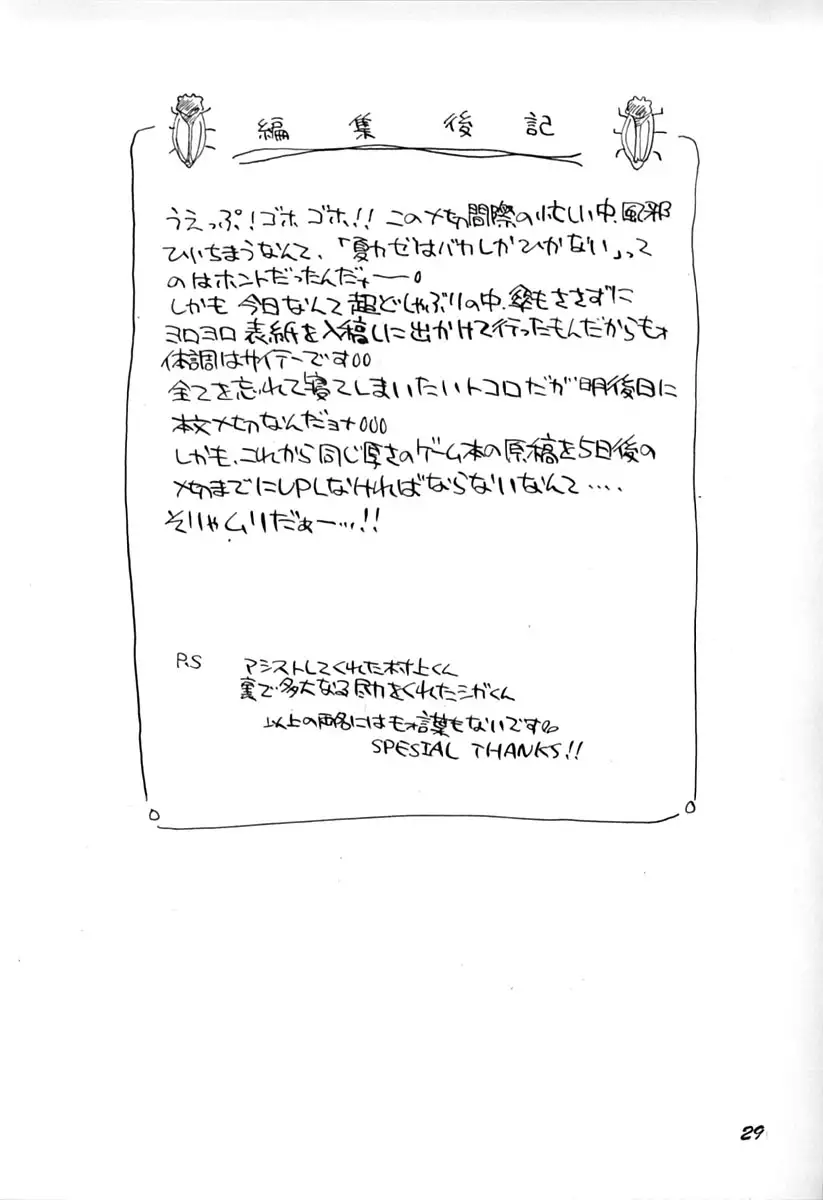 編集後記
うえっぷ!ゴホ ゴホ!! この〆切間際の忙しい中、風邪
ひいちまうなんて、「夏カゼはバカしかひかない」って
のはホントだったんだナー。
しかも 今日なんて超どしゃぶりの中、傘もささずに
ヨロヨロ 表紙を入稿しに出かけて行ったもんだからもォ
体調はサイテーです。。
全てを忘れて寝てしまいたいトコロだが明後日に
本文〆切なんだョナ。。。
しかも、これから同じ厚さのゲーム本の原稿を5日後の
〆切までにUPしなければならないなんて・・・・
そりゃムリだぁー...!!
P.S アシストしてくれた村上くん
裏で多大なる尽力をくれたシガくん
以上の両名にはもォ言葉もないです。
SPESIAL THANKS!!
29